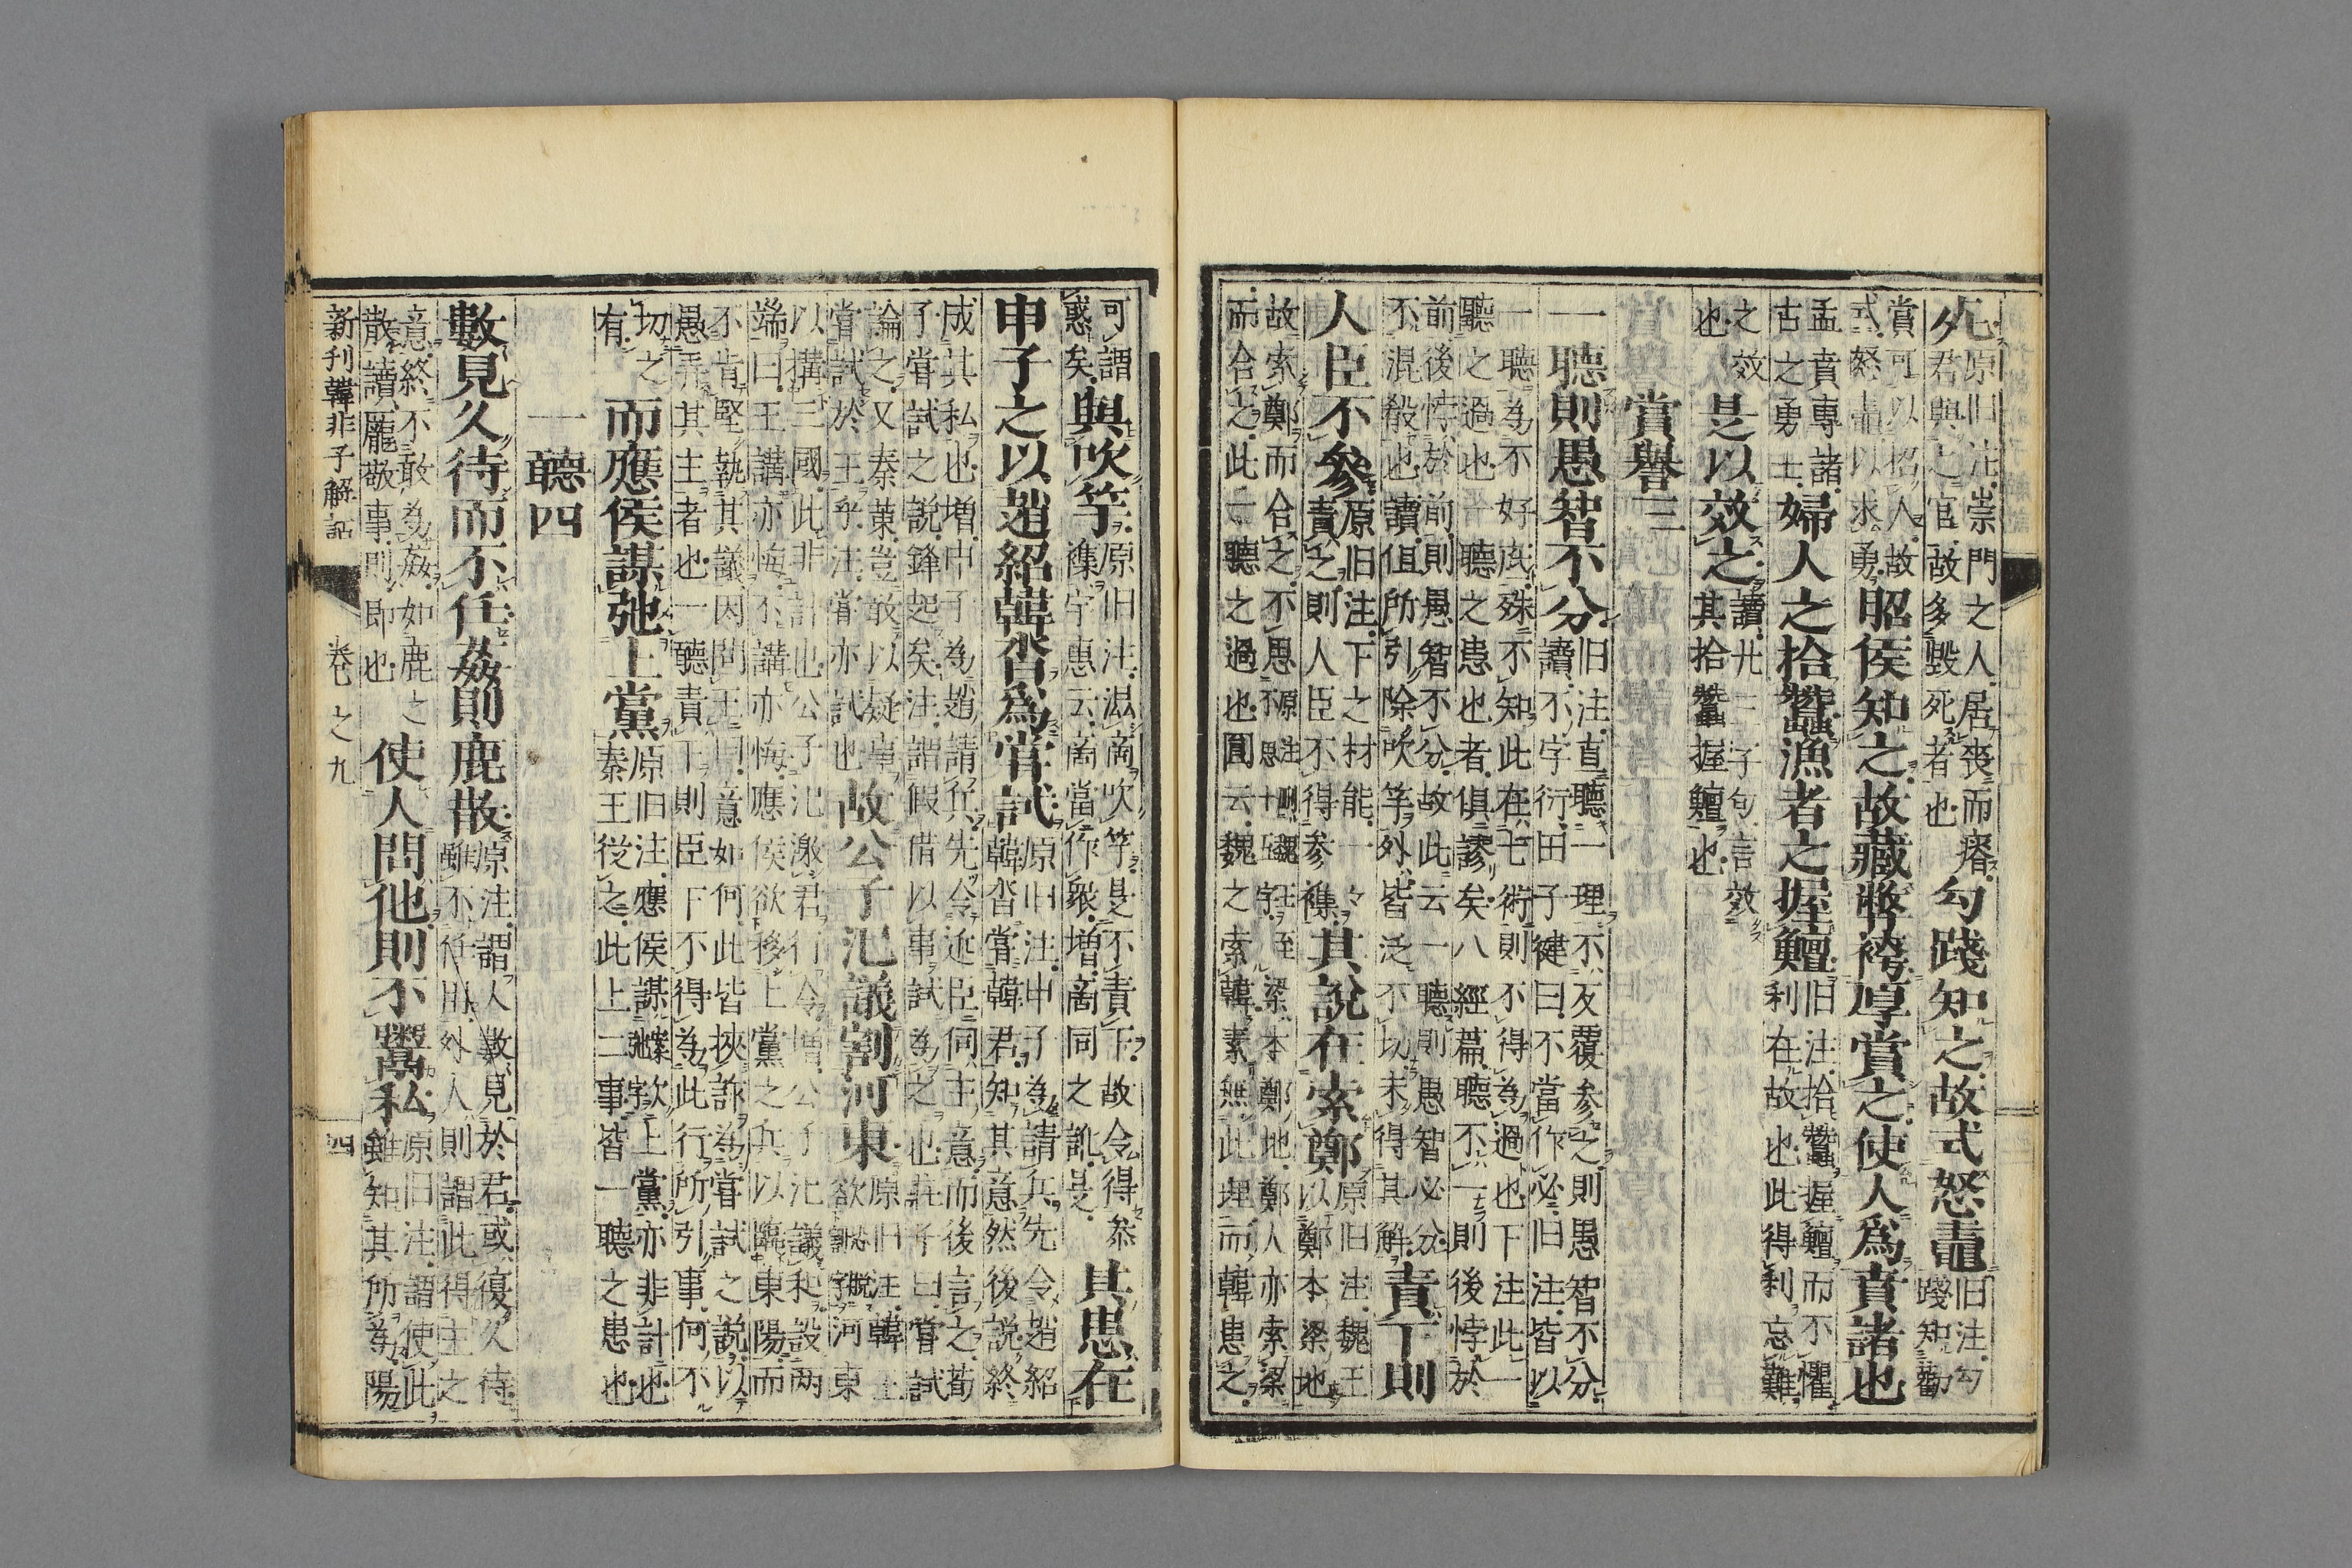 九原旧注崇門之人居喪而瘠
夕君與之官故多毀死者也勾踐知之故式怒鼃旧注勾踐知勸
賞可以招人故式怒鼃以求勇昭侯知之故藏弊袴厚賞之使人爲賁諸也
孟賁專諸古之勇士婦人之拾蠶漁者之握鱣旧注拾蠶握鱣而不懼利在故也此得利忘難
之效也是以效之讀廿二子句言效其拾蠶握鱣也
賞譽三
一聽則愚智不分旧注直聽一理不反覆参之則愚智不分讀不字衍田子健曰不當作必旧注皆以
一聽為不好底殊不知此在七術則不得為過也下注此一聽之過也一聽之患也者俱謬矣八經篇聽不一則後悖於
前後悖於前則愚智不分故此云一聽則愚智必分不混殽也讀但所引除吹竽外皆泛不切未得其解責下則
人臣不參原旧注下之材能一々責之則人臣不得参襍其說在索鄭原旧注魏王以鄭本梁地
故索鄭而合之不思梁本鄭地鄭人亦索梁而合之此一聽之過也圓云魏之索韓素無此理而韓患之
可謂惑矣與吹竽原旧注混商吹竽是不責下故令得参襍字惠云商當作眾增商同之訛是其患在
申子之以趙紹韓沓爲甞試原旧注申子為請兵先令趙紹韓沓甞韓君知其意然後說終
成其私也增申子為趙請兵先令近臣伺主意而後言之荀子甞試之說鋒起矣注謂假借以事試為之也莊子曰甞試
論之又秦策豈敢以疑事甞試於王乎注甞亦試也故公子氾議割河東原旧注韓王欲河東
以搆三國此非計也公子氾激君行令增公子氾議和設两端曰王講亦悔不講亦悔應侯欲移上黨之兵以臨東陽而
不肯堅執其議因問王曰意如何此皆挾詐為甞試之說以愚弄其主者也一聽責下則臣下不得為此行所引事何不
切之有而應侯謀弛上黨原旧注應侯謀弛上黨亦非計也秦王従之此上二事皆一聽之患也
一聽四
數見久待而不任姦則鹿散原注謂人數見於君或復久待雖不任用外人則謂此得主之
意終不敢為姦如鹿之散讀厖敬事則即也使人問他則不鬻私原旧注謂使此雖知其所為陽
新刊韓非子解詁 卷之九 四